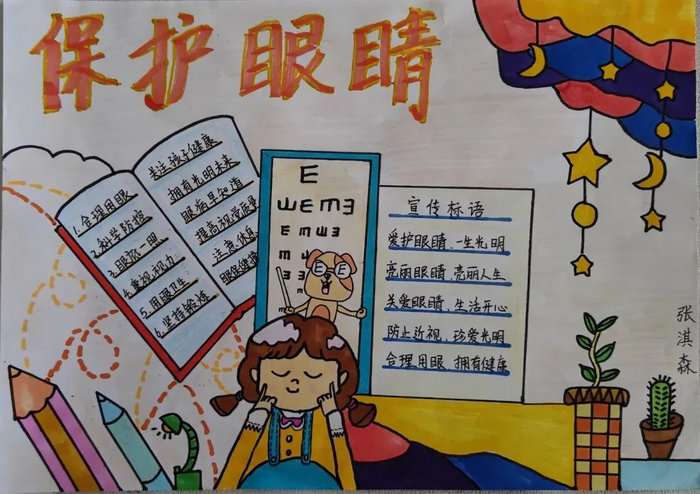 保护眼睛
1.合理用眼
2.科学防控
3.眼保一明
4.重视视力
5.用眼卫生
6.坚持锻炼
关注孩子健康
拥有光明未来
眼病早知道
提高视觉质量
注意休息
眼保健操
E
E
宣传标语
爱护眼睛、一生光明
亮丽眼睛、亮丽人生
关爱眼睛、生活开心
防止近视、珍爱光明
合理用眼、拥有健康
张淇森